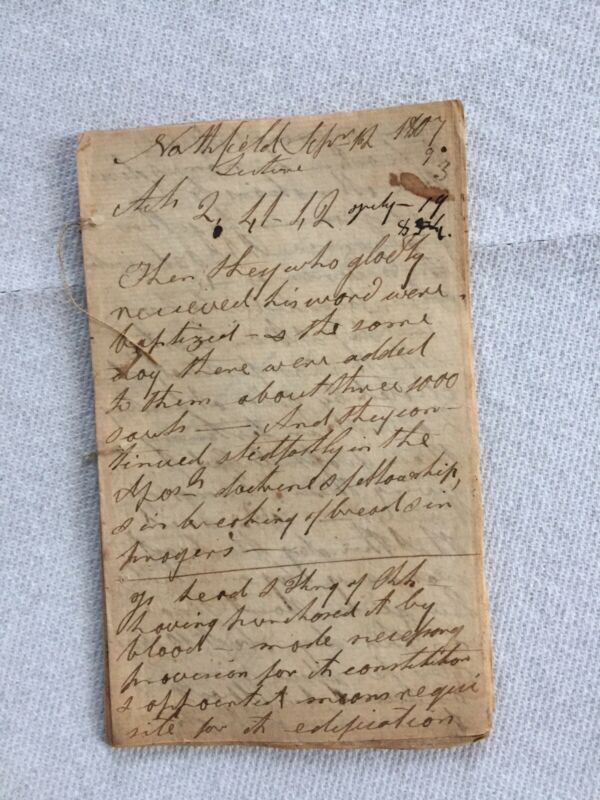 Northfield Sepr 12 1807
Lecture
Acts 2, 41-42
Then they who gladly
recieved his word were
baptized - & the same
day there were added
to them about three 1000
souls — And they con-
tinued stedfastly in the
Apos doctrine & fellowship,
& in breaking of bread & in
prayers -
head & King of Chh
having purchased it by
blood - made necessary
provision for its constitution
& appointed means requi
site for its edification